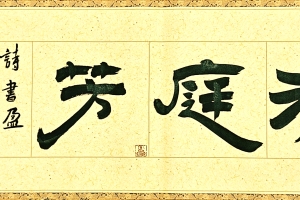 庭芳
詩書盈